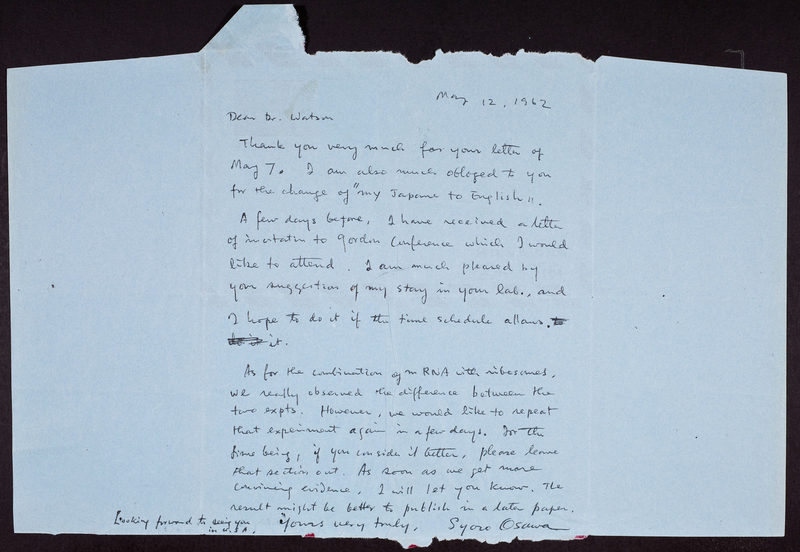 May 12, 1962
Dear Dr. Watson
Thank you very much for your letter of
May 7. I am also much obleged to you
for the change of "my Japane to English".
A few days before, I have received a letter
of invitatin to Gordon Conference which I would
like to attend. I am much pleased by
your suggestion of my stay in your lab., and
I hope to do it if the time schedule allows.
it.
As for the combination of m RNA with ribosomes,
we really observed the difference between the
two expts. However, we would like to repeat
that experiment again in a few days. For the
time being, if you consider it better, please leave
that section out. As soon as we get more
convincing evidence, I will let you know. The
result might be better to publish in a later paper.
Looking forward to seeing you
in U.S.A.,
Yours very truly,
Syozo Osawa